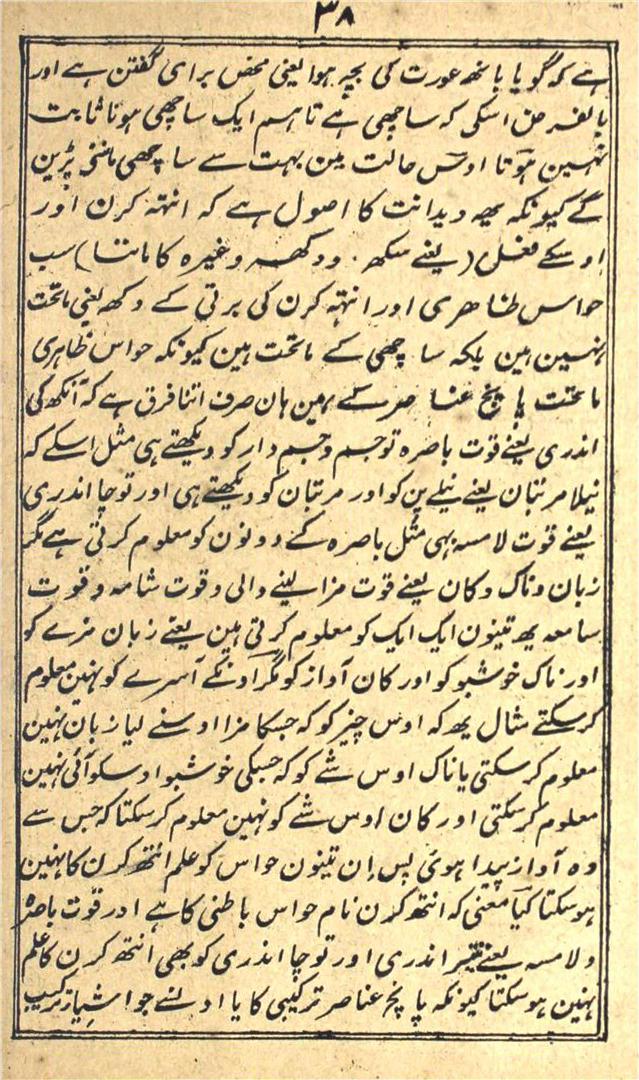 ۳۸
ہے کہ گویا بانجھ عورت کی بچہ ہوا یعنی محض برای گفتن ہے اور
بالفرض اسکی کہ ساچھی ہے تاہم ایک ساچھی ہونا ثابت
نہین ہوتا اوس حالت مین بہت سے ساچھی ماننی پڑین
گے کیونکہ یہہ ویدانت کا اصول ہے کہ انتہہ کرن اور
اوسکے فعل (یعنے سکھ . ودکھہ وغیرہ کا ماننا) سب
حواس ظاہری اور انتہہ کرن کی برتی کے دکھ یعنی ماتحت
نہین ہین بلکہ ساچھی کے ماتحت ہین کیونکہ حواس ظاہری
ماتحت پانچ عناصر کے ہین ہان صرف اتنا فرق ہے کہ آنکھ کی
اندری یعنے قوت باصرہ تو جسم وجسم دار کو دیکھتے ہی مثل اسکے کہ
نیلا مرتبان یعنے نیلے پن کو اور مرتبان کو دیکھتے ہی اور توچا اندری
یعنے قوت لامسہ بہی مثل باصرہ کے دونون کو معلوم کرتی ہے مگر
زبان وناک وکان یعنے قوت مزا لینے والی وقوت شامہ وقوت
سامعہ یہہ تینون ایک ایک کو معلوم کرتی ہین یعنے زبان مزے کو
اور ناک خوشبو کو اور کان آواز کو مگر اونکے آسرے کو نہین معلوم
کرسکتے مثال یہہ کہ اوس چیز کو کہ جسکا مزا اوسنے لیا زبان نہین
معلوم کرسکتی یا ناک اوس شے کو کہ جسکی خوشبو اوسکو آئی نہین
معلوم کرسکتی اور کان اوس شے کو نہین معلوم کرسکتا کہ جس سے
وہ آواز پیدا ہوئی پس ان تینون حواس کو علم انتھہ کرن کا نہین
ہوسکتا کیا معنی کہ انتھہ کرن نام حواس باطنی کا ہے اور قوت باصرہ
ولامسہ یعنے نیتر اندری اور توچا اندری کو بھی انتھہ کرن کا علم
نہین ہوسکتا کیونکہ پانچ عناصر ترکیبی کا یا اونسے جو اشیاء ترکیب